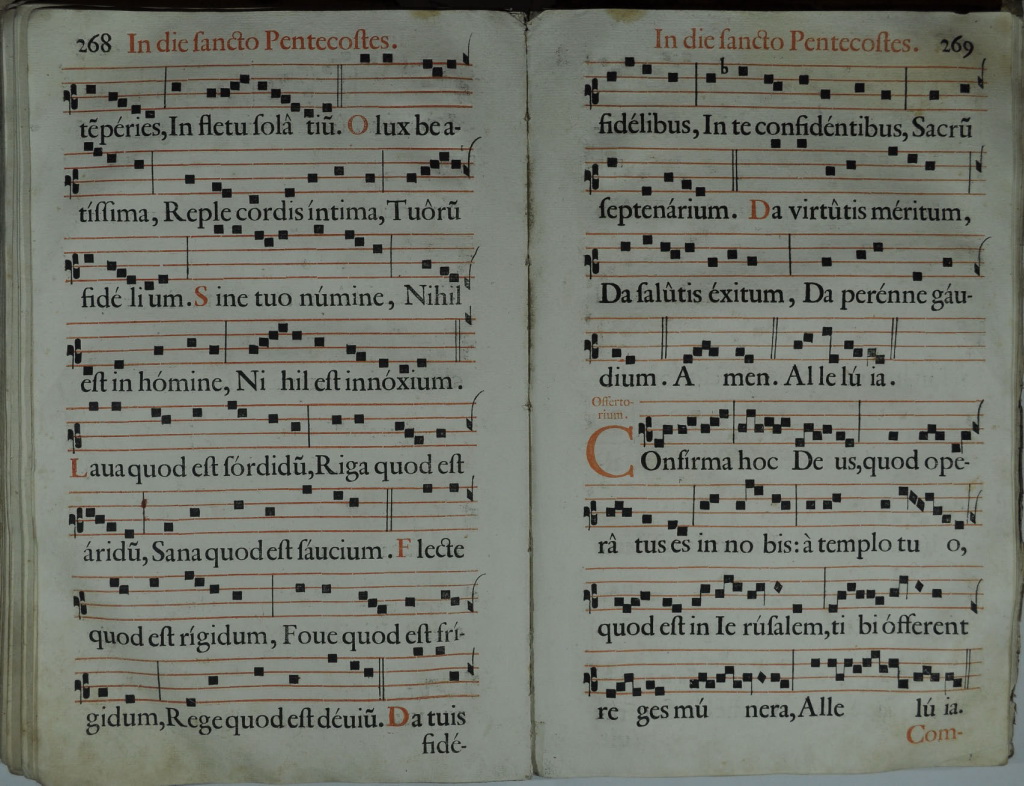 268 In die ſancto Pentecoſtes.
tẽpéries, In fletu ſolâ tiũ. O lux be a-
tíſſima, Reple cordis íntima, Tuôrũ
fidé li um. S ine tuo númine, Nihil
eſt in hómine, Ni hil eſt innóxium.
Laua quod eſt ſórdidũ, Riga quod eſt
áridũ, Sana quod eſt ſáucium. F lecte
quod eſt rígidum, Foue quod eſt frí-
gidum, Rege quod eſt déuiũ. Da tuis
fidé-
In die ſancto Pentecoſtes. 269
fidélibus, In te confidéntibus, Sacrũ
ſeptenárium. Da virtûtis méritum,
Da ſalûtis éxitum, Da perénne gáu-
dium. A men. Al le lú ia.
Offerto-
rium.
COnfírma hoc De us, quod ope-
râ tus es in no bis: à templo tu o,
quod eſt in Ie rúſalem, ti bi ófferent
re ges mú nera, Alle lú ia.
Com-